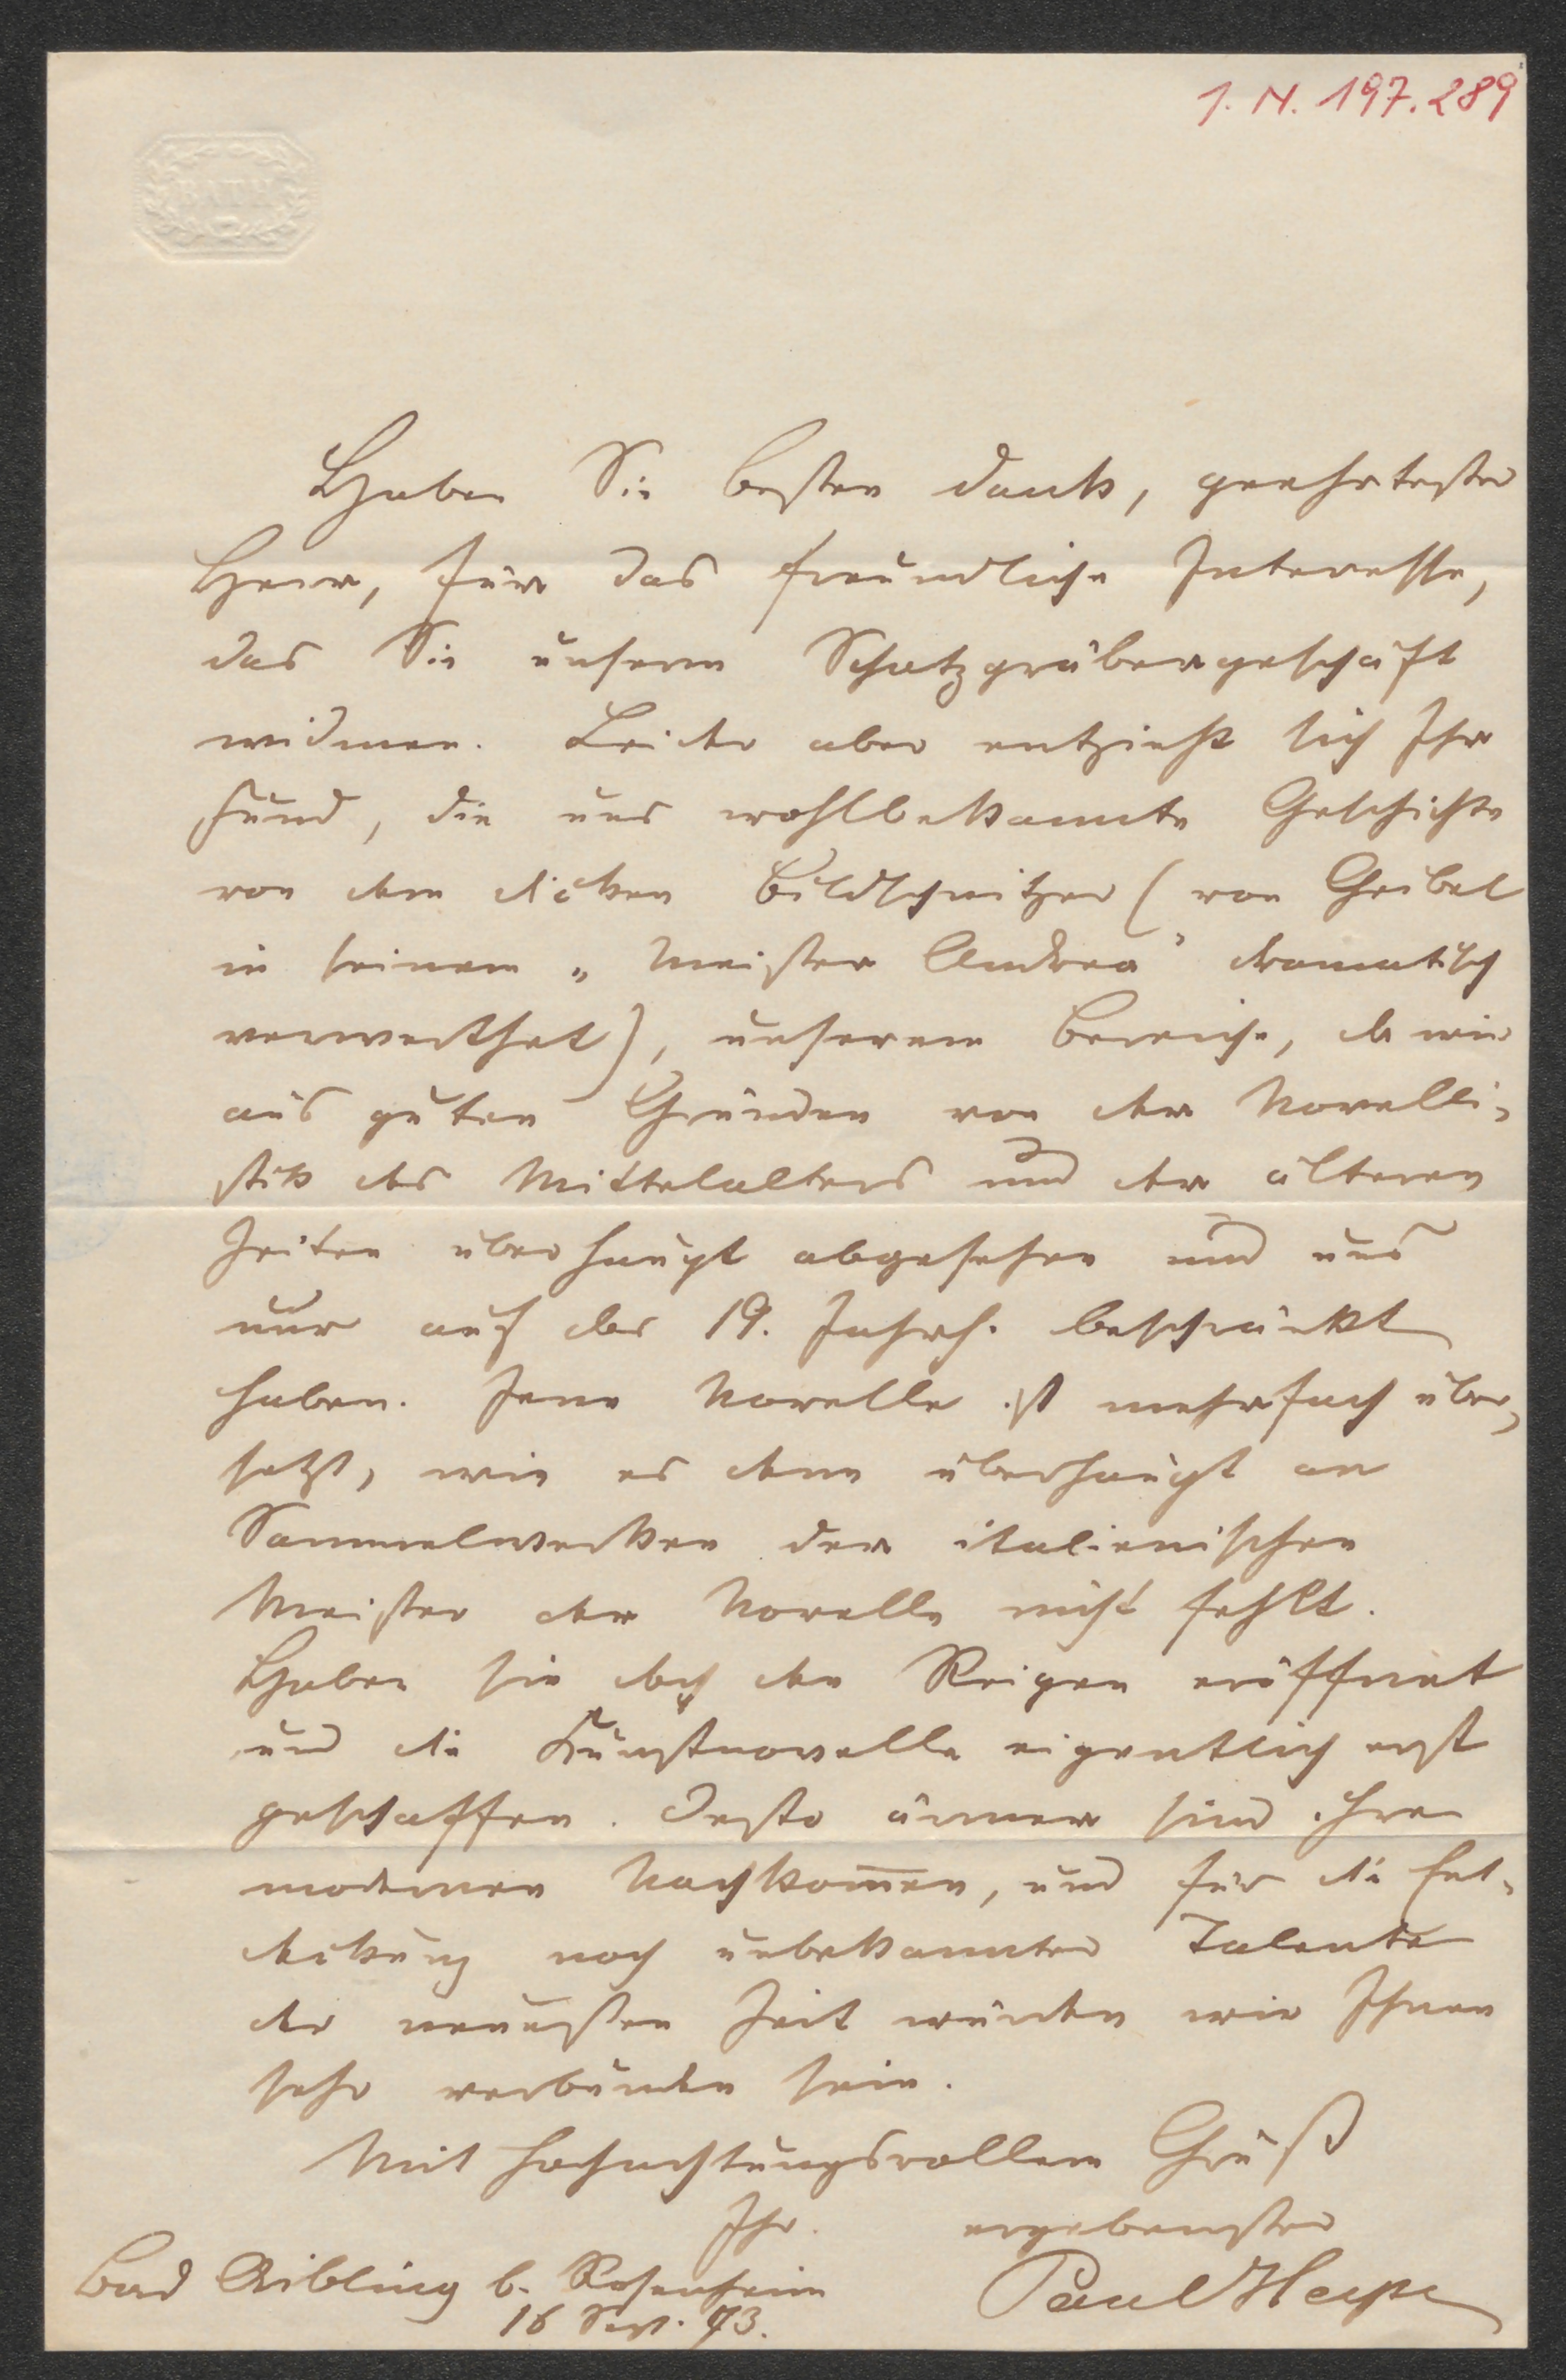 I. N. 197.289
BATH
Haben Sie besten Dank, geehrtester
Herr, für das freundliche Interesse,
das Sie unserm Schatzgräbergeschäft
widmen. Leider aber entzieht sich Ihr
Fund, die uns wohlbekannte Geschichte
von dem dicken Bildschnitzer (von Geibel
in seinem „Meister Andrea" dramatisch
verwerthet), unserem Bereiche, da wir
aus guten Gründen von der Novelli-
stik des Mittelalters und der älteren
Zeiten überhaupt abgesehen und uns
nur auf das 19. Jahrh. beschränkt
haben. Jene Novelle ist mehrfach über-
setzt, wie es denn überhaupt an
Sammelwerken der italienischen
Meister der Novelle nicht fehlt.
Haben sie doch den Reigen eröffnet
und die Kunstnovelle eigentlich erst
geschaffen. Desto ärmer sind ihre
modernen Nachkom̅en, und für die Ent-
deckung noch unbekannter Talente
der neuesten Zeit würden wir Ihnen
sehr verbunden sein.
Mit hochachtungsvollem Gruß
Ihr ergebenster
Paul Heyse
Bad Aibling b. Rosenheim
16 Sept. 73.